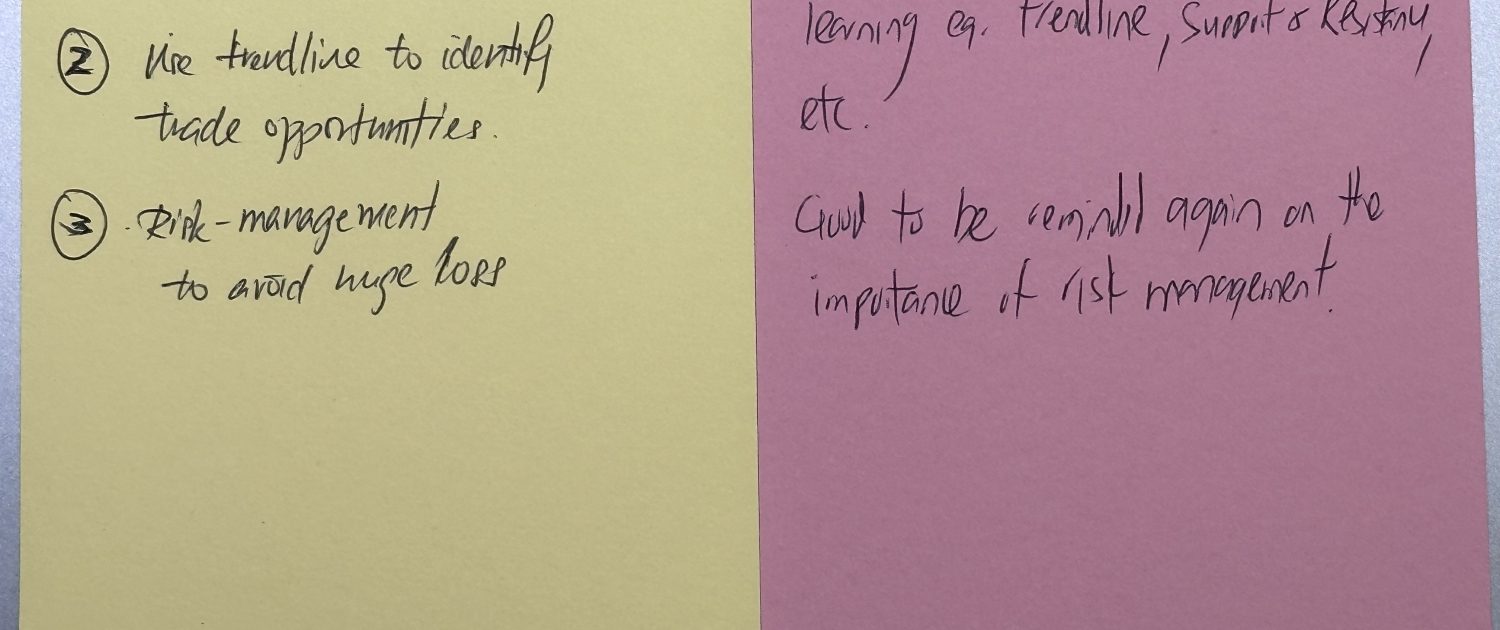 ② Use trendline to identify
trade opportunities.
③ Risk-management
to avoid huge loss
learning eg. trendline, Support & Resistany,
etc.
Good to be reminded again on the
importance of risk management.